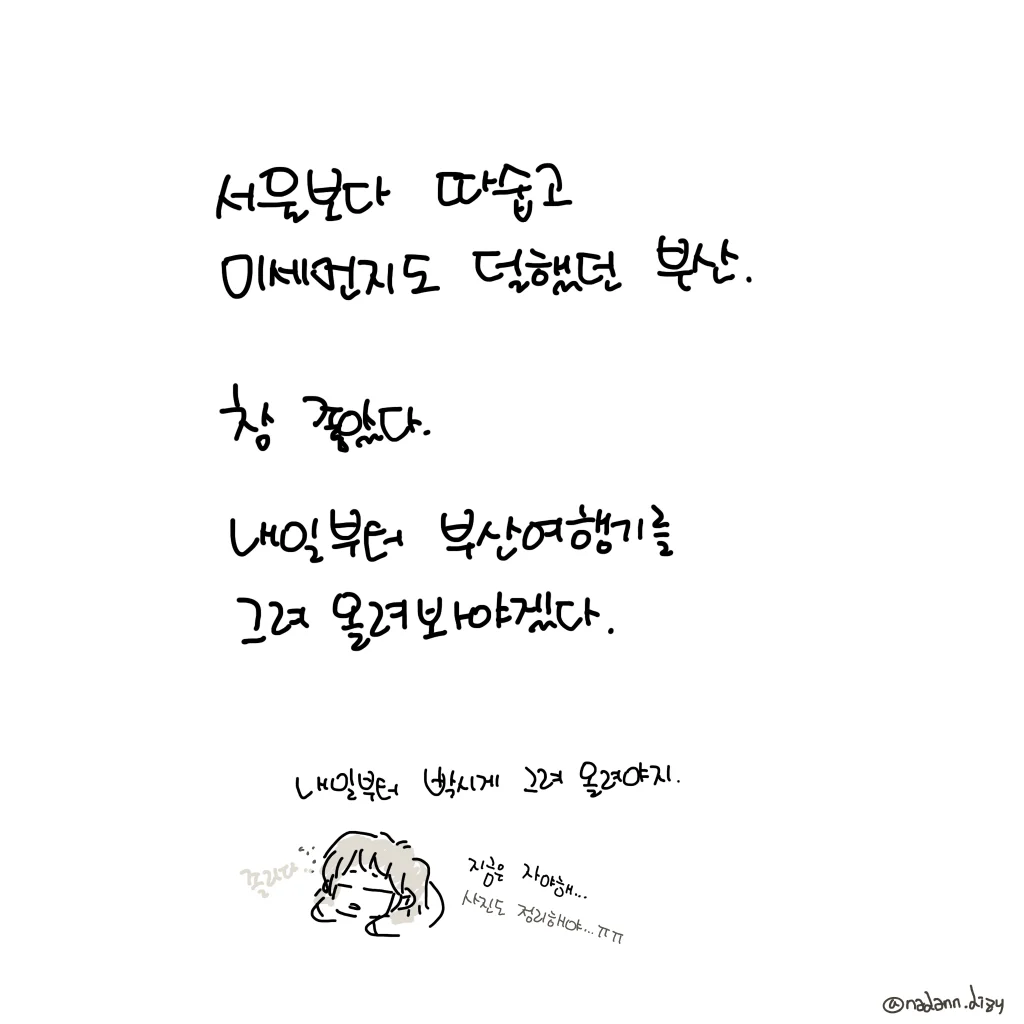 서울보다 따숩고
미세먼지도 덜했던 부산.
참 좋았다.
내일부터 부산여행기를
그려 올려봐야겠다.
내일부터 빡시게 그려 올려야지.
졸리다..
지금은 자야해...
사진도 정리해야...ㅠㅠ
@nadann.dizy